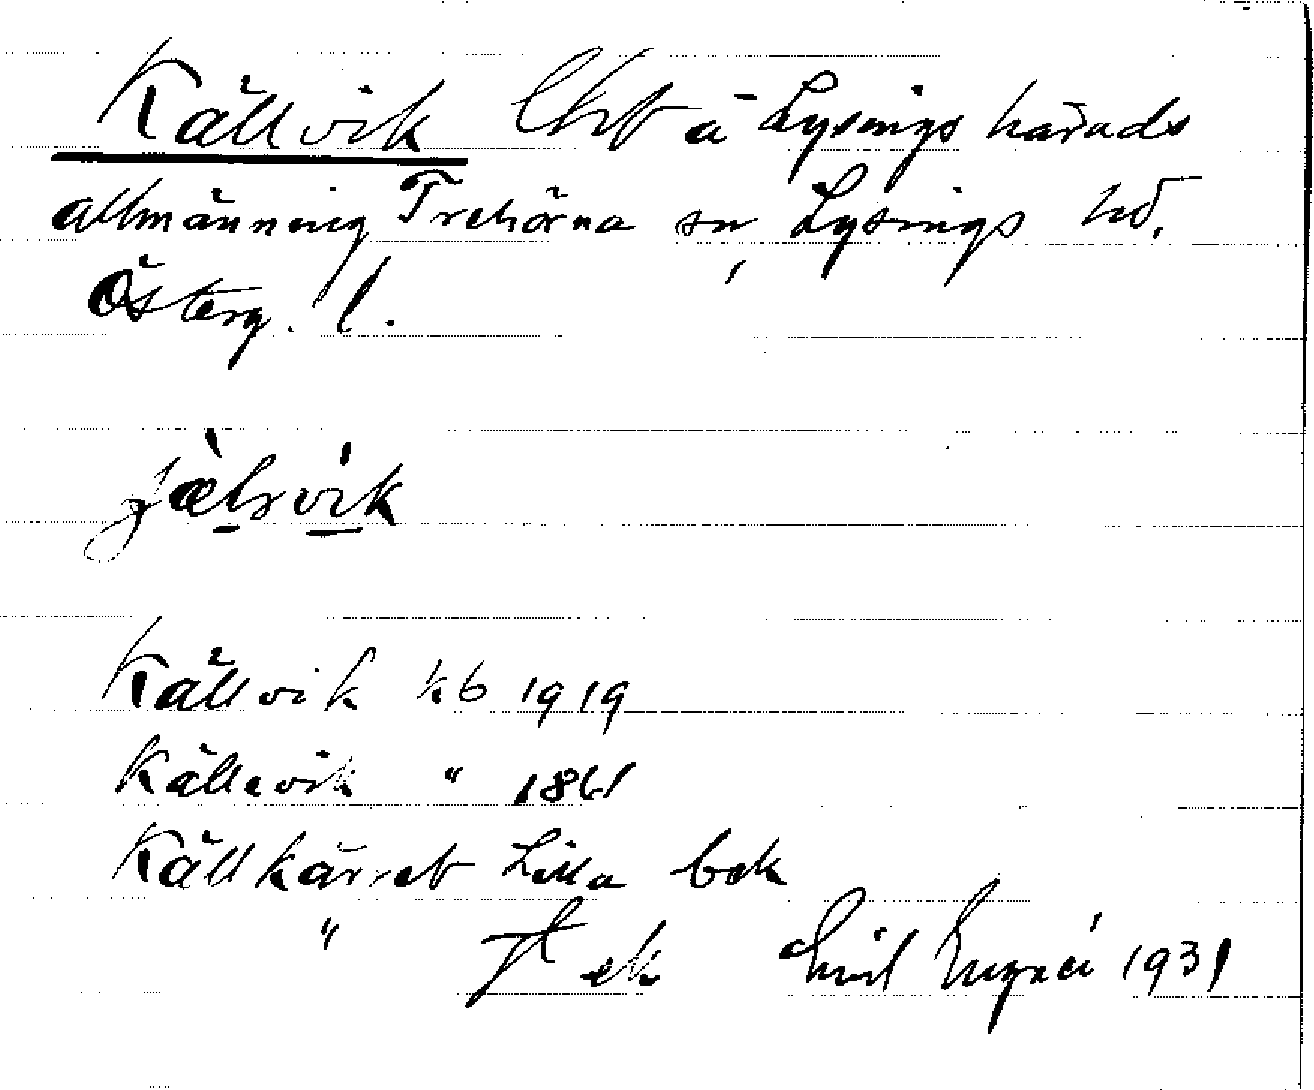 Källvik Cht å Lysings härads
allmänning Trehörna sn, Lysings hd.
Österg. l.
jæ̀lsvik
Källvik kb 1919
Källevik " 1861
Källkärret Lilla bek
" ek Emil 1931